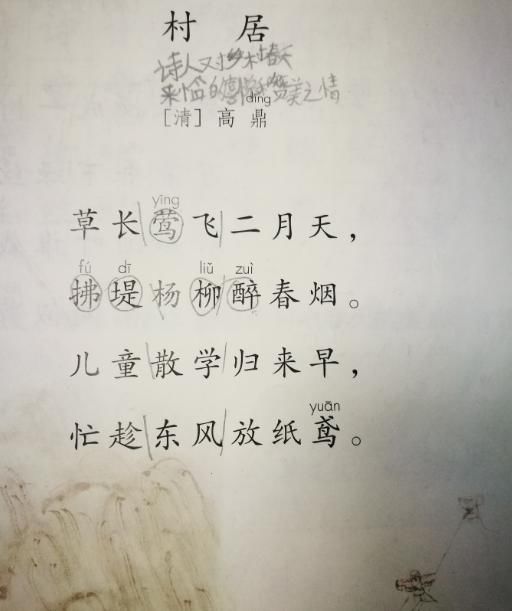 村 居
诗人又对乡村春天
来临的喜悦和赞美之情
dǐng
[清] 高 鼎
yīng
草长莺飞二月天，
fú dī liǔ zuì
拂堤杨柳醉春烟。
儿童散学归来早，
yuān
忙趁东风放纸鸢。